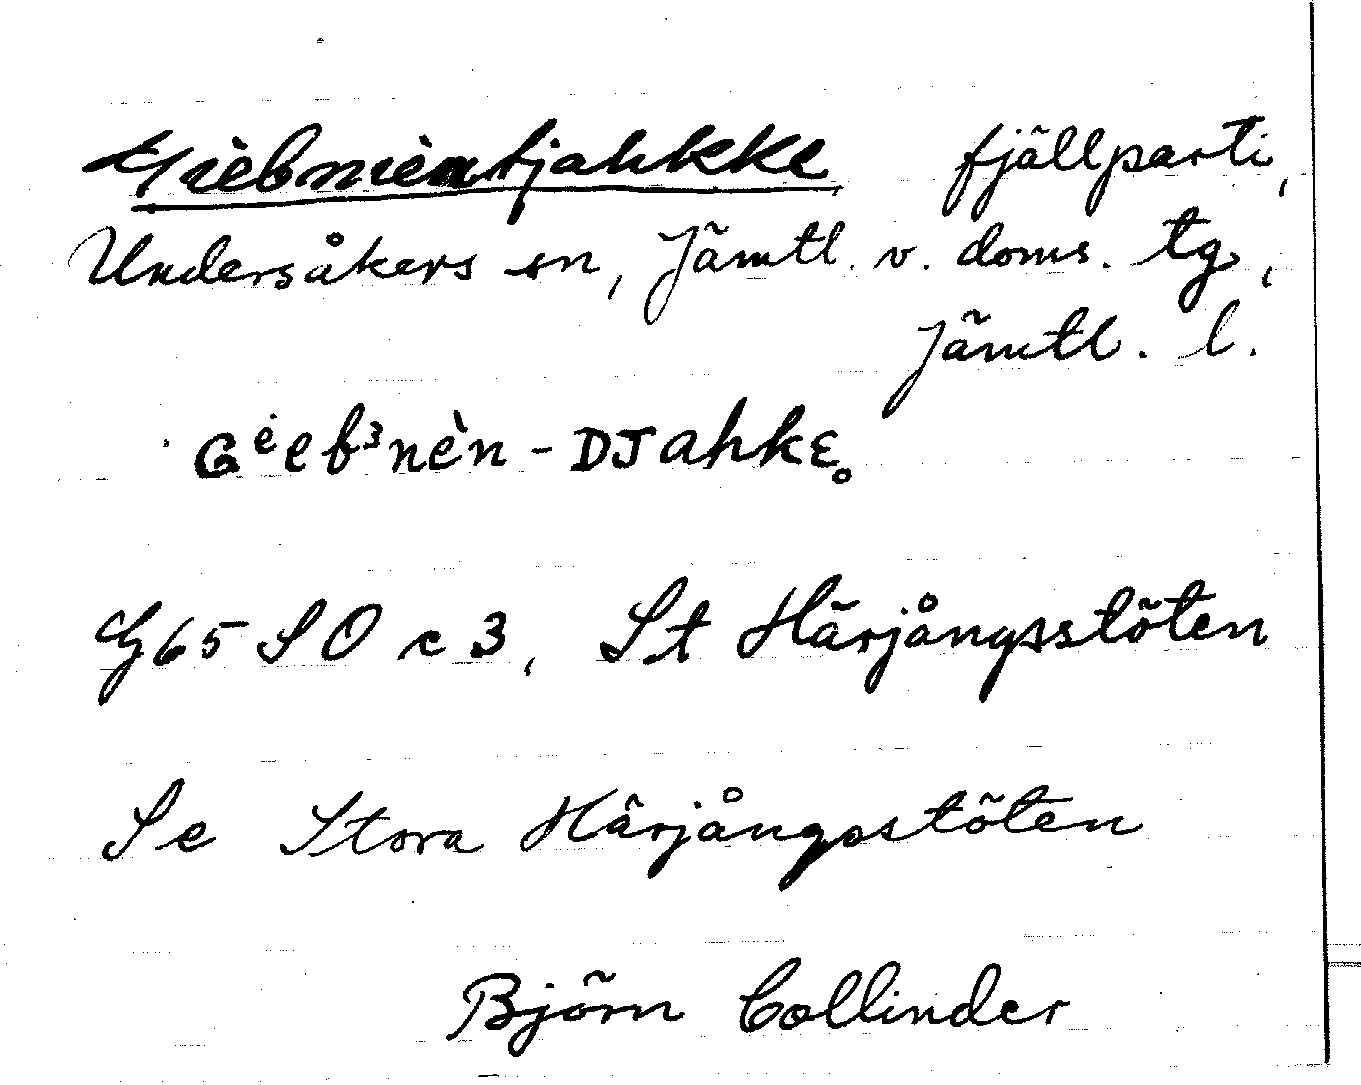 Gièbnièntjahkke fjällparti,
Undersåkers sn, Jämtl. v. doms. tg,
Jämtl. l.
Gėeb³nèn-DJahkɛ.
G65 SO c 3, St Härjångsstöten
Se Stora Härjångsstöten
Björn Collinder